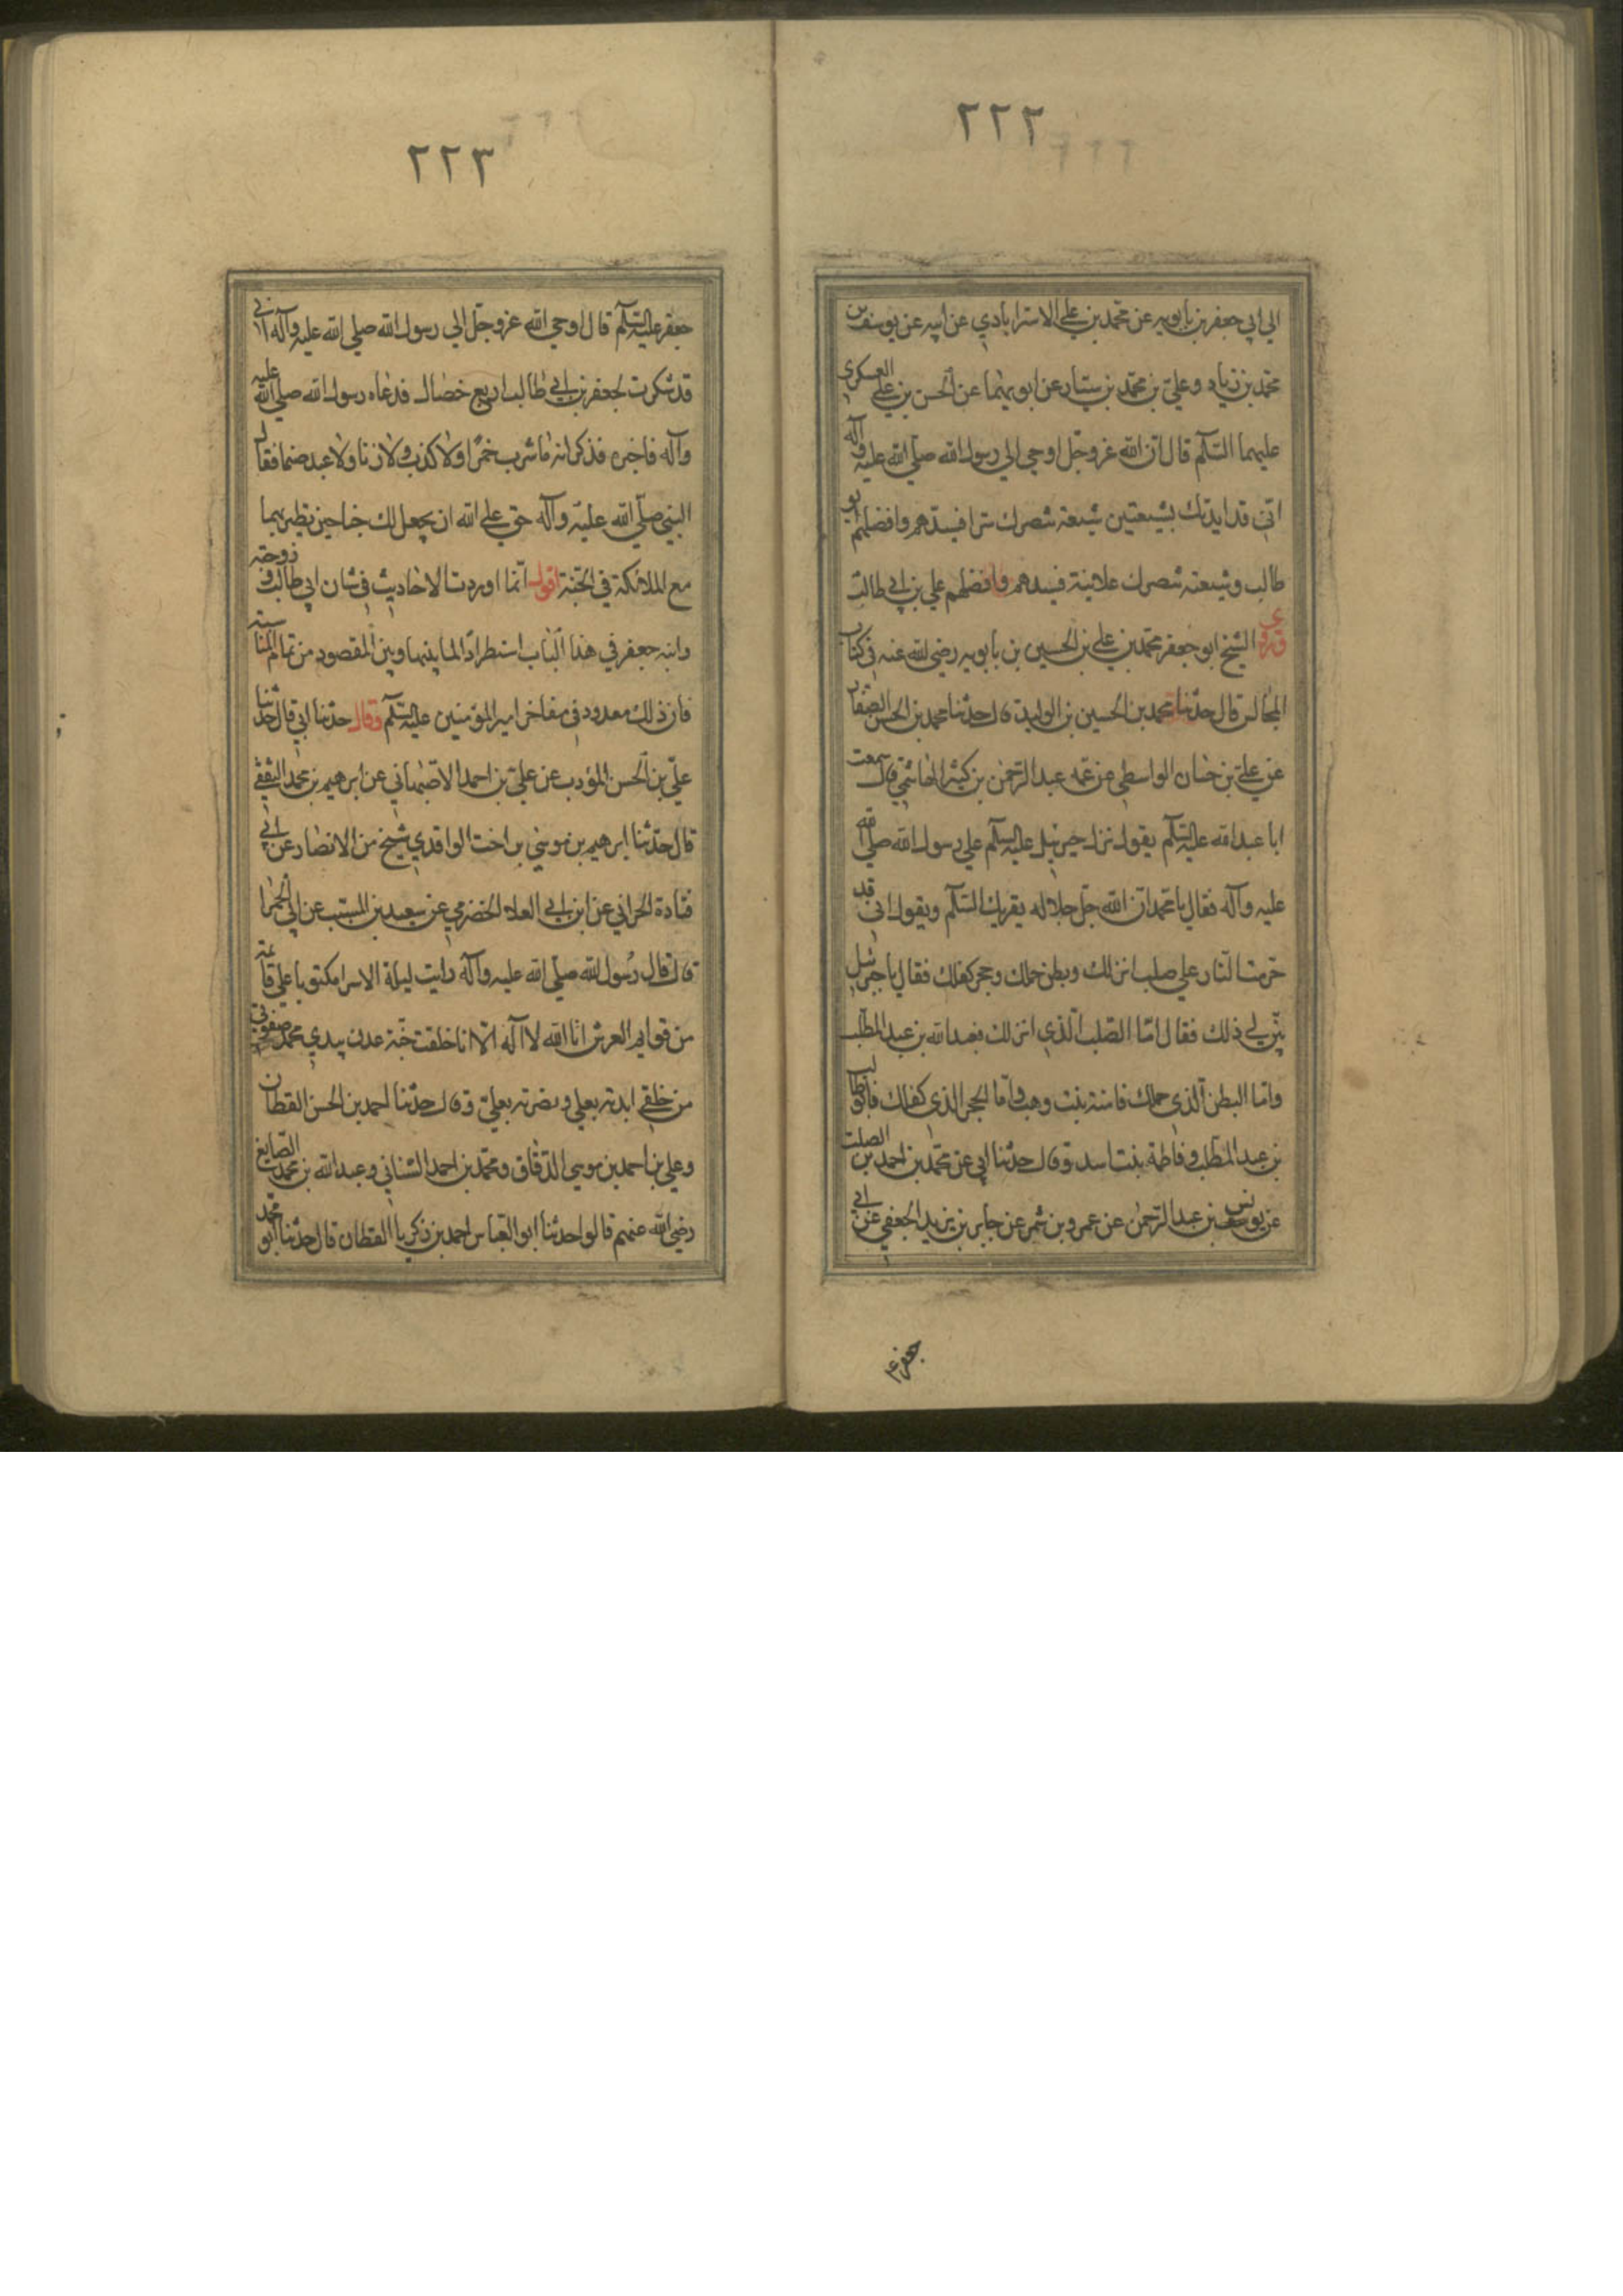 ٢٢٢
الي ابي جعفر بن بابويه عن محمد بن علي الاسترابادي عن ابيه عن يوسف بن
محمد بن زياد وعلي بن محمد بن سيار عن ابويهما عن الحسن بن علي العسكري
عليهما السلم قال ان الله عز وجل اوحي الي رسول الله صلي الله عليه وآله
اني قد ايدتك بشيعتين شيعة تنصرك سرا فسيدهم وافضلهم ابو
طالب وشيعته تنصرك علانية فسيدهم وافضلهم علي بن ابي طالب
وروي الشيخ ابو جعفر محمد بن علي بن الحسين بن بابويه رضي الله عنه في كتاب
المجالس قال حدثنا محمد بن الحسين بن الوليد قال حدثنا محمد بن الحسن الصفار
عن علي بن حسان الواسطي عن عمه عبد الرحمن بن كثير الهاشمي قال سمعت
ابا عبد الله عليه السلم يقول نزل جبرئيل عليه السلم علي رسول الله صلي الله
عليه وآله فقال يا محمد ان الله جل جلاله يقرئك السلم ويقول اني قد
حرمت النار علي صلب انزلك وبطن حملك وحجر كفلك فقال يا جبرئيل
بين لي ذلك فقال اما الصلب الذي انزلك فعبد الله بن عبد المطلب
واما البطن الذي حملك فامنة بنت وهب واما الحجر الذي كفلك فابو طالب
بن عبد المطلب وفاطمة بنت اسد وقال حدثنا ابي عن محمد بن احمد بن الصلت
عن يونس بن عبد الرحمن عن عمرو بن شمر عن جابر بن يزيد الجعفي عن ابي
جعفر ع
٢٢٣
جعفر عليه السلم قال اوحي الله عز وجل الي رسول الله صلي الله عليه وآله اني
قد شكرت لجعفر بن ابي طالب اربع خصال فدعاه رسول الله صلي الله عليه
وآله فاخبره فذكر انه ما شرب خمرا ولا كذب ولا زنا ولا عبد صنما فقال
النبي صلي الله عليه وآله حق علي الله ان يجعل لك جناحين تطير بهما
مع الملائكة في الجنة اقول انما اوردت الاحاديث في شان ابي طالب وزوجته
وابنه جعفر في هذا الباب استطرادا لما بينها وبين المقصود من تمام المناسبة
فان ذلك معدود في مفاخر امير المؤمنين عليه السلم وقال حدثنا ابي قال حدثنا
علي بن الحسن المؤدب عن علي بن احمد الاصبهاني عن ابرهيم بن محمد الثقفي
قال حدثنا ابرهيم بن موسي بن اخت الواقدي شيخ من الانصار عن ابي
قتادة الحراني عن ابن ابي العلاء الخضرمي عن سعيد بن المسيب عن ابي الحمرا
قال قال رسول الله صلي الله عليه وآله رايت ليلة الاسرا مكتوبا علي قائمة
من قوايم العرش انا الله لا اله الا انا خلقت جنة عدن بيدي محمد صفوتي
من خلقي ايدته بعلي ونصرته بعلي وقال حدثنا احمد بن الحسن القطان
وعلي بن احمد بن موسي الدقاق ومحمد بن احمد السناني وعبد الله بن محمد الصايغ
رضي الله عنهم قالوا حدثنا ابو العباس احمد بن زكريا القطان قال حدثنا ابو محمد